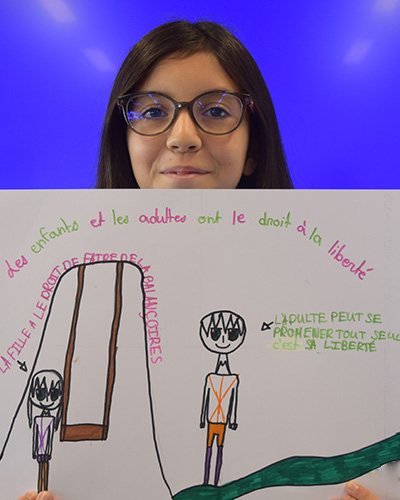 Les enfants et les adultes ont le droit à la liberté
LA FILLE A LE DROIT DE FAIRE DE LA BALANÇOIRES
L'ADULTE PEUT SE
PROMENER TOUT SEUL
c'est SA LIBERTÉ